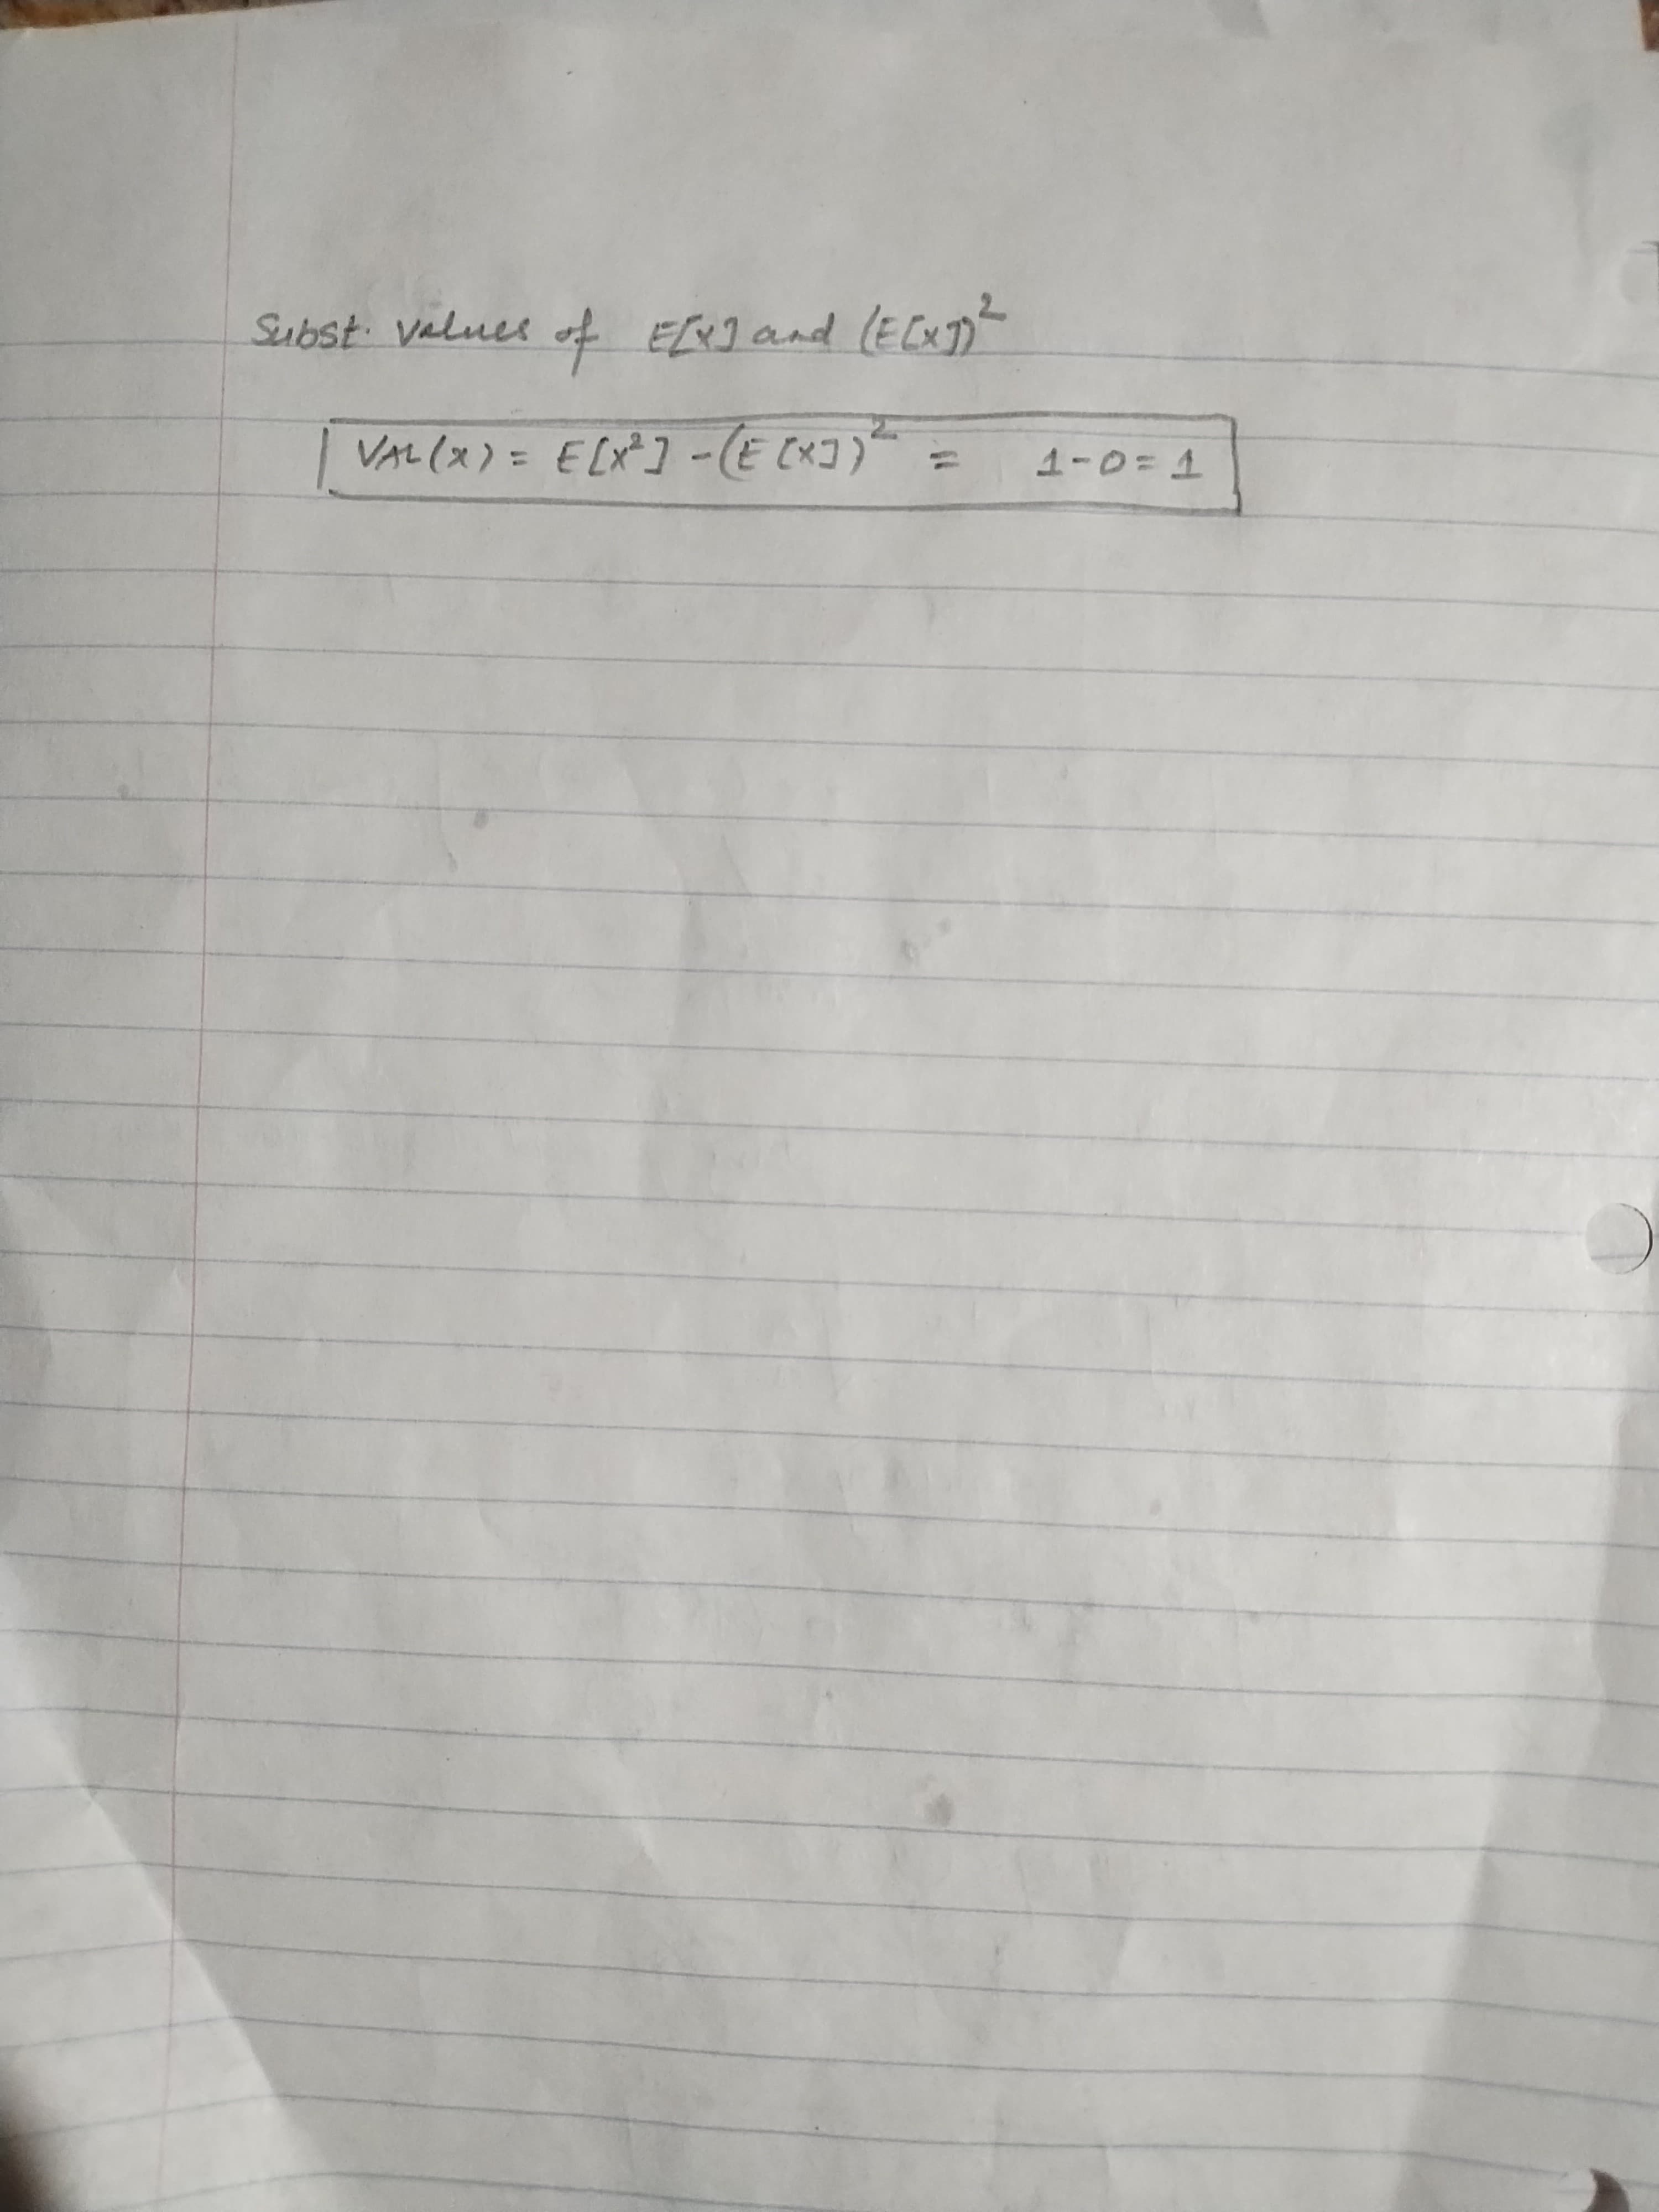 Subst. values of E[x] and (E[x])²
Var(x) = E[x²] - (E[x])² = 1-0=1